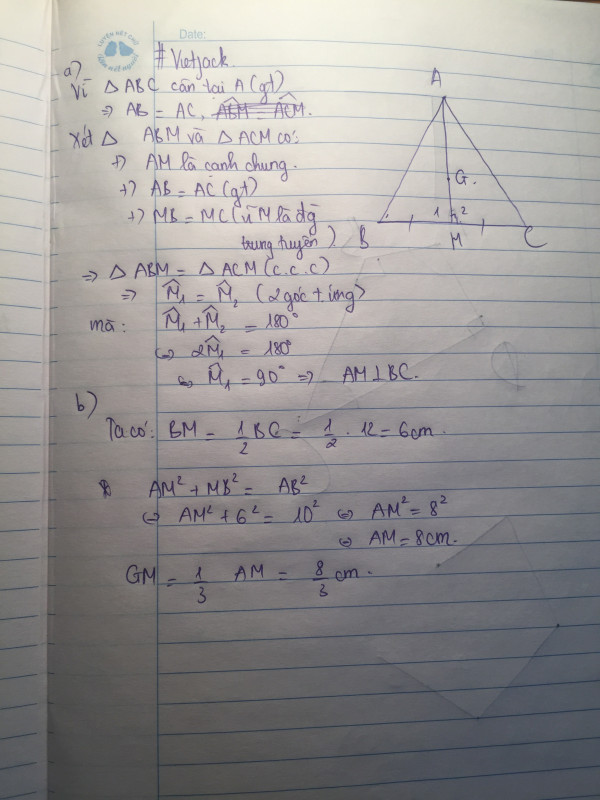 Date:
LUYỆN NÉT CHỮ
RÈN NẾT NGƯỜI
# Vietjack.
a)
Vì △ ABC cân tại A (gt)
⇒ AB = AC,
Xét △ ABM và △ ACM có:
+) AM là cạnh chung.
+) AB = AC (gt)
+) MB = MC (vì M là đg
trung tuyến)
⇒ △ ABM = △ ACM (c.c.c)
⇒ M̂₁ = M̂₂ (2 góc t. ứng)
mà: M̂₁ + M̂₂ = 180°
⇔ 2M̂₁ = 180°
⇔ M̂₁ = 90° ⇒ AM ⊥ BC.
A
G.
1 2
B M C
b)
Ta có: BM = 1/2 BC = 1/2 . 12 = 6cm.
AM² + MB² = AB²
⇔ AM² + 6² = 10² ⇔ AM² = 8²
⇔ AM = 8cm.
GM = 1/3 AM = 8/3 cm.